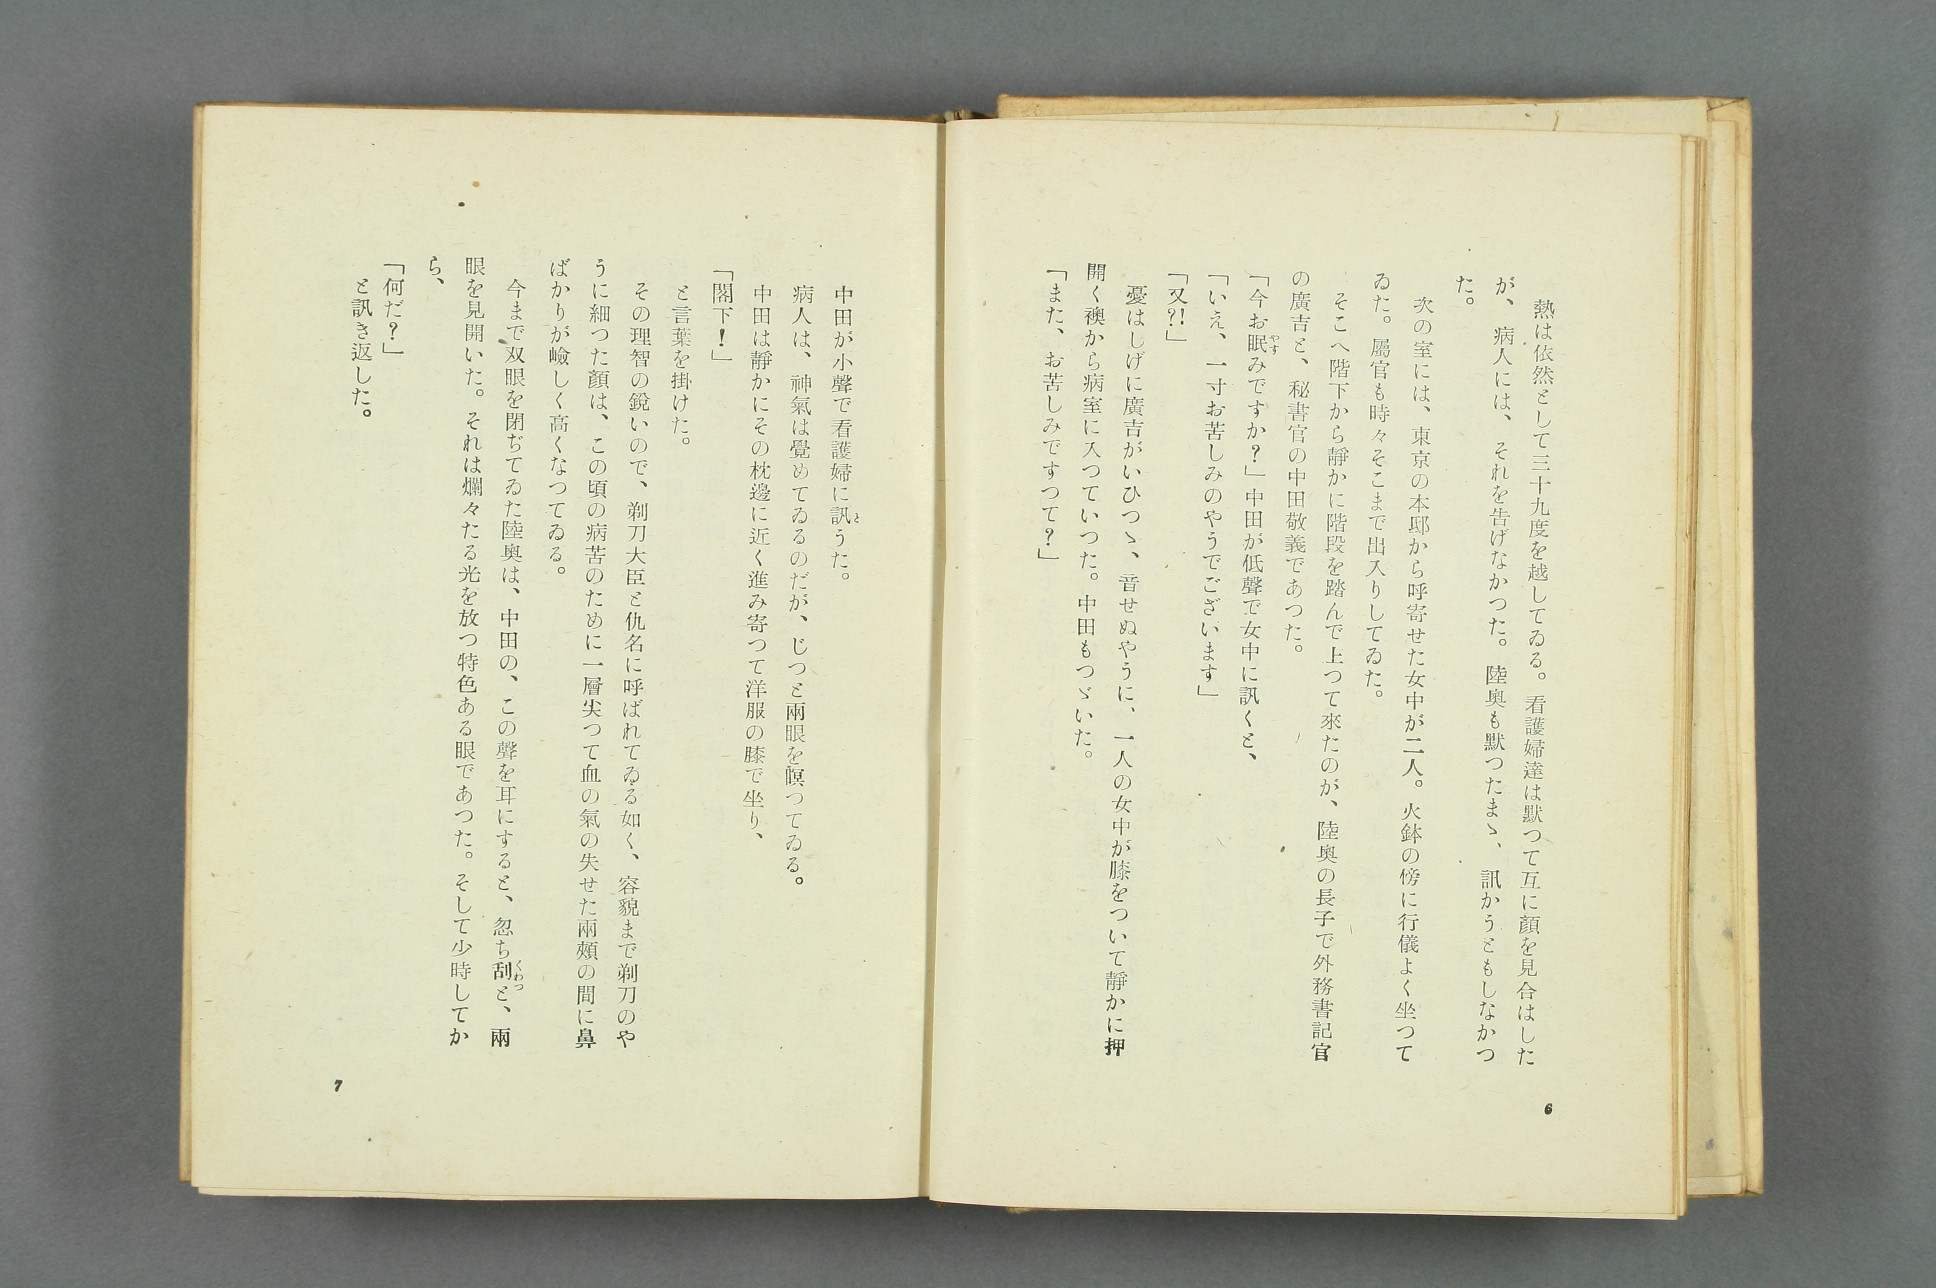 熱は依然として三十九度を越してゐる。看護婦達は默つて互に顏を見合はした
が、病人には、それを告げなかつた。陸奧も默つたまゝ、訊かうともしなかつ
た。
次の室には、東京の本邸から呼寄せた女中が二人。火鉢の傍に行儀よく坐つて
ゐた。屬官も時々そこまで出入りしてゐた。
そこへ階下から靜かに階段を踏んで上つて來たのが、陸奧の長子で外務書記官
の廣吉と、秘書官の中田敬義であつた。
「今お眠みですか?」中田が低聲で女中に訊くと、
やす
「いえ、一寸お苦しみのやうでございます」
「又?!」
憂はしげに廣吉がいひつゝ、音せぬやうに、一人の女中が膝をついて靜かに押
開く襖から病室に入つていつた。中田もつゞいた。
「また、お苦しみですつて?」
6
中田が小聲で看護婦に訊うた。
と
病人は、神氣は覺めてゐるのだが、じつと兩眼を瞑つてゐる。
中田は靜かにその枕邊に近く進み寄つて洋服の膝で坐り、
「閣下!」
と言葉を掛けた。
その理智の銳いので、剃刀大臣と仇名に呼ばれてゐる如く、容貌まで剃刀のや
うに細つた顏は、この頃の病苦のために一層尖つて血の氣の失せた兩頰の間に鼻
ばかりが嶮しく高くなつてゐる。
今まで双眼を閉ぢてゐた陸奧は、中田の、この聲を耳にすると、忽ち刮と、兩
くわつ
眼を見開いた。それは爛々たる光を放つ特色ある眼であつた。そして少時してか
ら、
「何だ?」
と訊き返した。
7